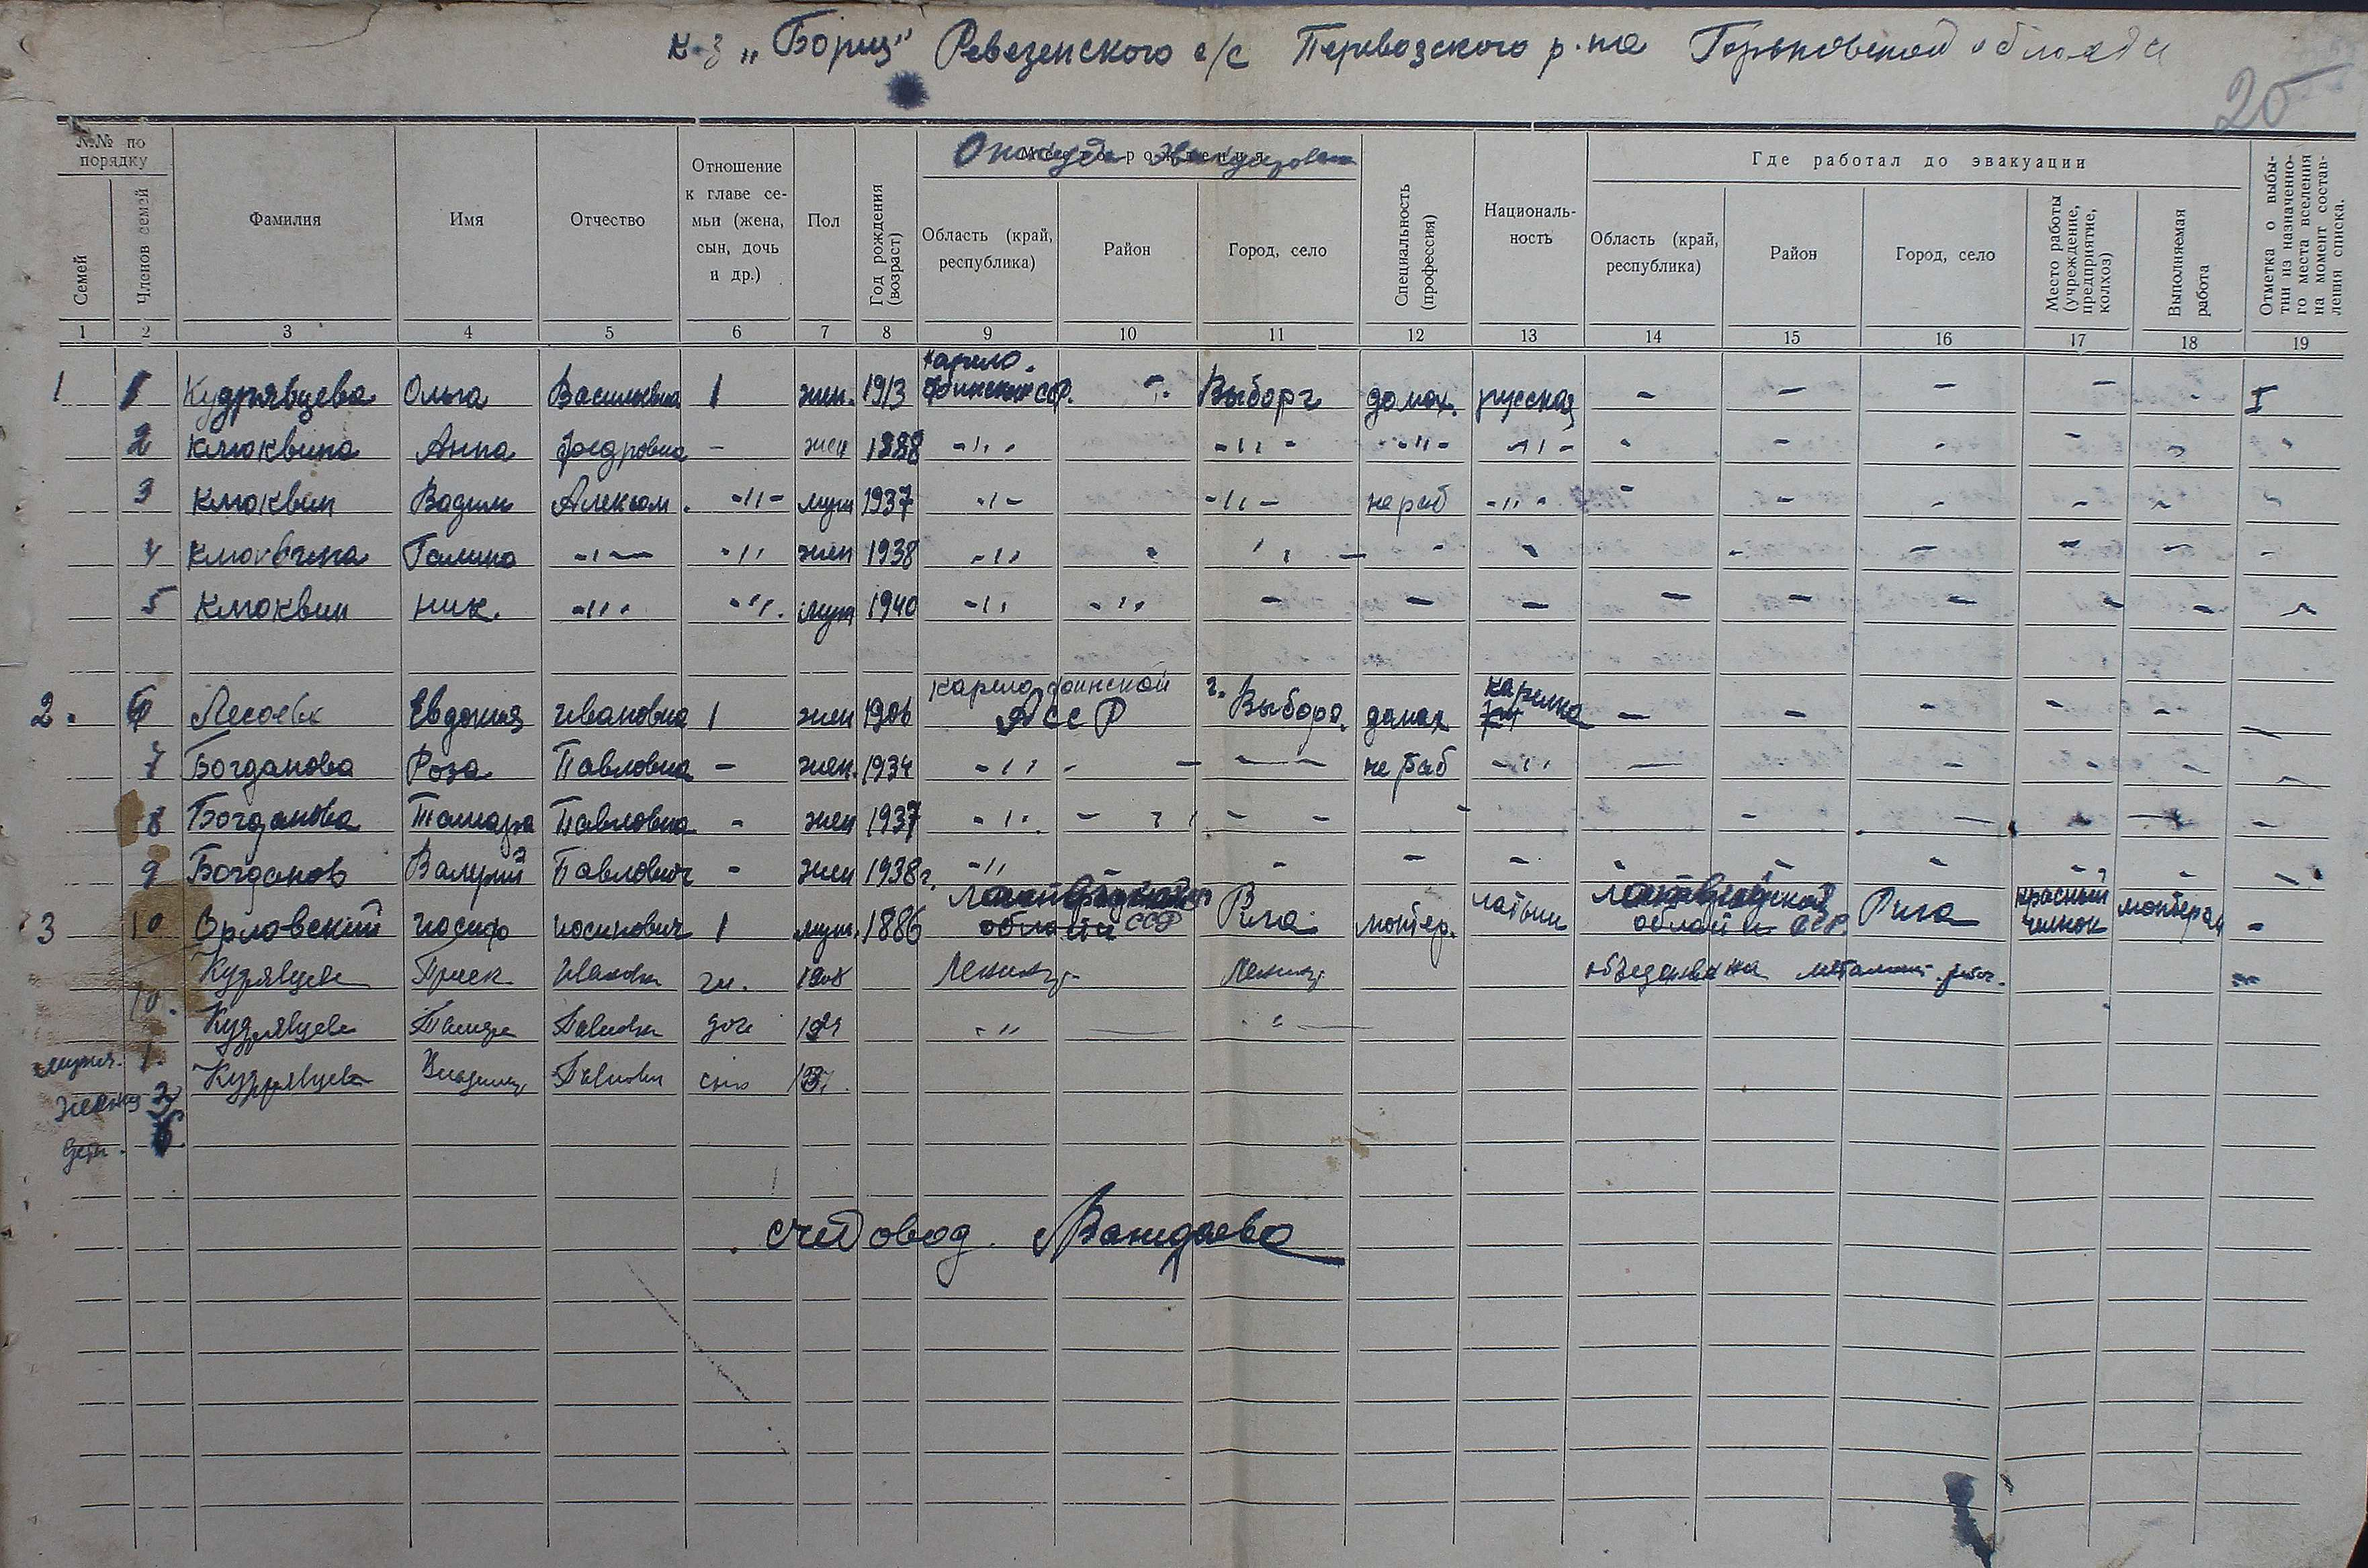 к-з „Борец" Ревезенского с/с Перевозского р-на Горьковской области
20
№№ по порядку
Семей
Членов семей
Фамилия
Имя
Отчество
Отношение к главе семьи (жена, сын, дочь и др.)
Пол
Год рождения (возраст)
Откуда эвакуирован
Область (край, республика)
Район
Город, село
Специальность (профессия)
Националь-ность
Где работал до эвакуации
Область (край, республика)
Район
Город, село
Место работы (учреждение, предприятие, колхоз)
Выполняемая работа
Отметка о выбы-тии из назначенно-го места вселения на момент состав-ления списка.
1 2 3 4 5 6 7 8 9 10 11 12 13 14 15 16 17 18 19
1 1 Кудрявцева Ольга Васильевна 1 жен. 1913 карело-финский ССР. - Выборг домох. русская - - - - - I
2 Клюквина Анна Федровна - жен 1888 -"- -"- -"- -"- - - - - - -
3 Клюквин Вадим Алексан. -"- муж 1937 -"- -"- не раб -"- - - - - - -
4 Клюквина Галина -"- -"- жен 1938 -"- - -"- - - - - - - - -
5 Клюквин Ник. -"- -"- муж 1940 -"- -"- - - - - - - - - -
2. 6 Евдокия Ивановна 1 жен 1906 карело финской АССР г. Выборг. домох карелка - - - - - -
7 Богданова Роза Павловна - жен. 1934 -"- - - не раб -"- - - - - - -
8 Богданова Тамара Павловна - жен 1937 -"- - - - - - - - -
9 Богданов Валерий Павлович - жен 1938г. -"- - - - - - - - - -
3 10 Орловский иосиф иосипович 1 муж. 1886 ССР Рига монтер. латыш ССР Рига красный монтерам -
Кудрявцева Ивановна 1908 Ленингр. Ленингр.
10. Кудрявцева Павловна доч -"-
мужч. 1. Кудрявцев сын
женщ 3
дети. 6.
счетовод